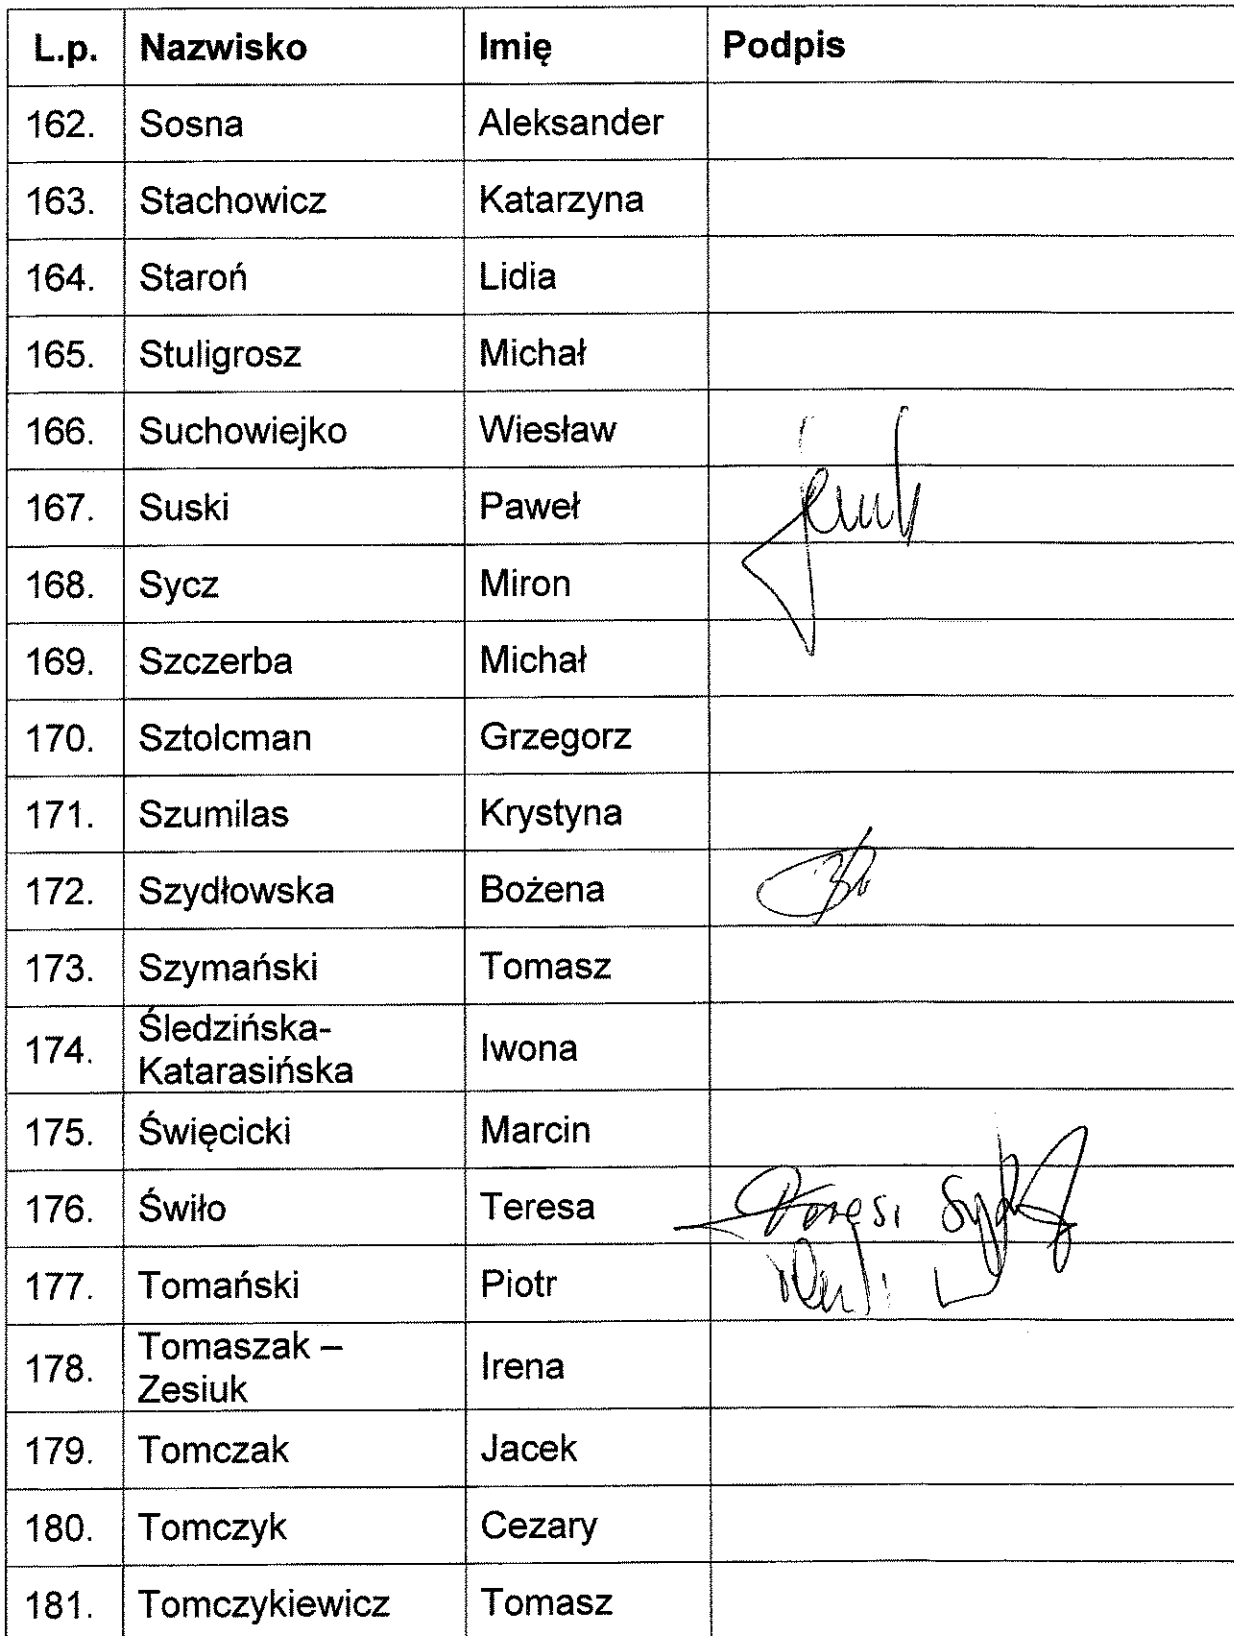 L.p. Nazwisko Imię Podpis
162. Sosna Aleksander
163. Stachowicz Katarzyna
164. Staroń Lidia
165. Stuligrosz Michał
166. Suchowiejko Wiesław
167. Suski Paweł
168. Sycz Miron
169. Szczerba Michał
170. Sztolcman Grzegorz
171. Szumilas Krystyna
172. Szydłowska Bożena
173. Szymański Tomasz
174. Śledzińska-
Katarasińska Iwona
175. Święcicki Marcin
176. Świło Teresa
177. Tomański Piotr
178. Tomaszak –
Zesiuk Irena
179. Tomczak Jacek
180. Tomczyk Cezary
181. Tomczykiewicz Tomasz